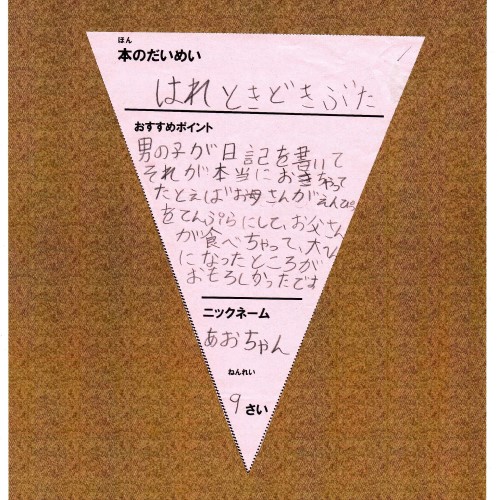 ほん
本のだいめい
はれときどきぶた
おすすめポイント
男の子が日記を書いて
それが本当におきちゃって
たとえばお母さんがえんぴつ
をてんぷらにして、お父さん
が食べちゃって、大へん
になったところが
おもろしかったです
ニックネーム
あおちゃん
ねんれい
9さい